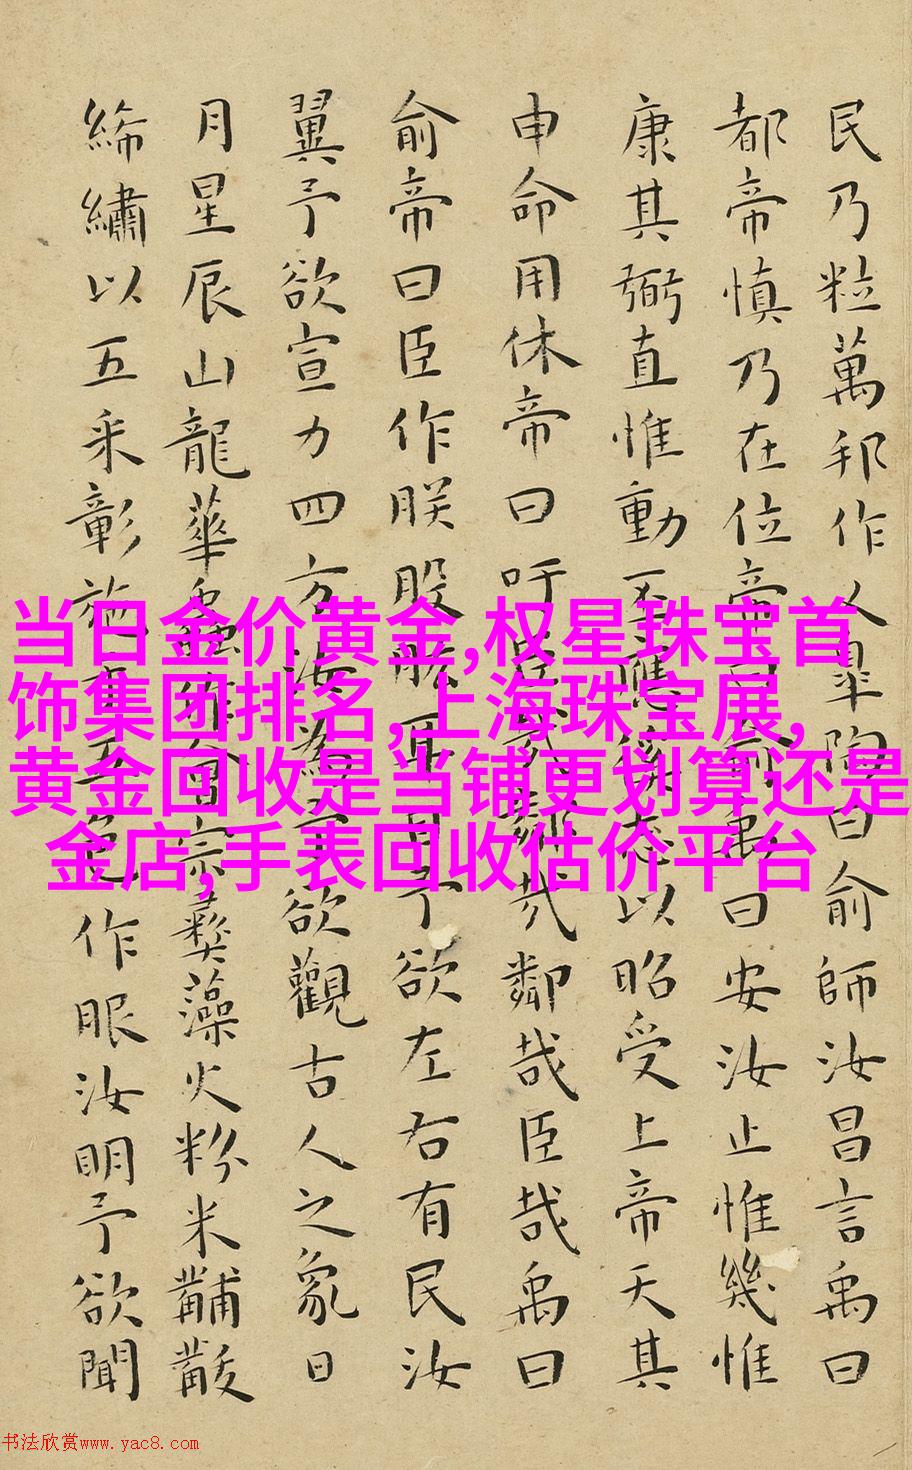 民乃粒萬邦作乂皋陶曰俞師汝昌言禹曰
都帝慎乃在位帝曰俞禹曰安汝止惟幾惟
康其弼直惟動丕應徯志以昭受上帝天其
申命用休帝曰吁臣哉鄰哉鄰哉臣哉禹曰
俞帝曰臣作朕股肱耳目予欲左右有民汝
翼予欲宣力四方汝為予欲觀古人之象日
月星辰山龍華蟲作會宗彝藻火粉米黼黻
絺繡以五采彰施于五色作服汝明予欲聞
当日金价黄金,权星珠宝首
饰集团排名,上海珠宝展,
黄金回收是当铺更划算还是
金店,手表回收估价平台
书法欣赏www.yac8.com